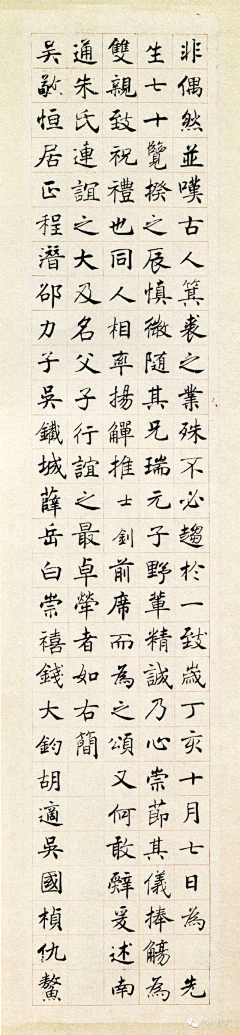 非偶然並嘆古人箕裘之業殊不必趨於一致歲丁亥十月七日為　先
生七十覽揆之辰慎微隨其兄瑞元子野輩精誠乃心崇節其儀捧觴為
雙親致祝禮也同人相率揚觶推士釗前席而為之頌又何敢辭爰述南
通朱氏連誼之大及名父子行誼之最卓犖者如右簡
吳敬恒居正程潛邵力子吳鐵城薛岳白崇禧錢大鈞胡適吳國楨仇鰲